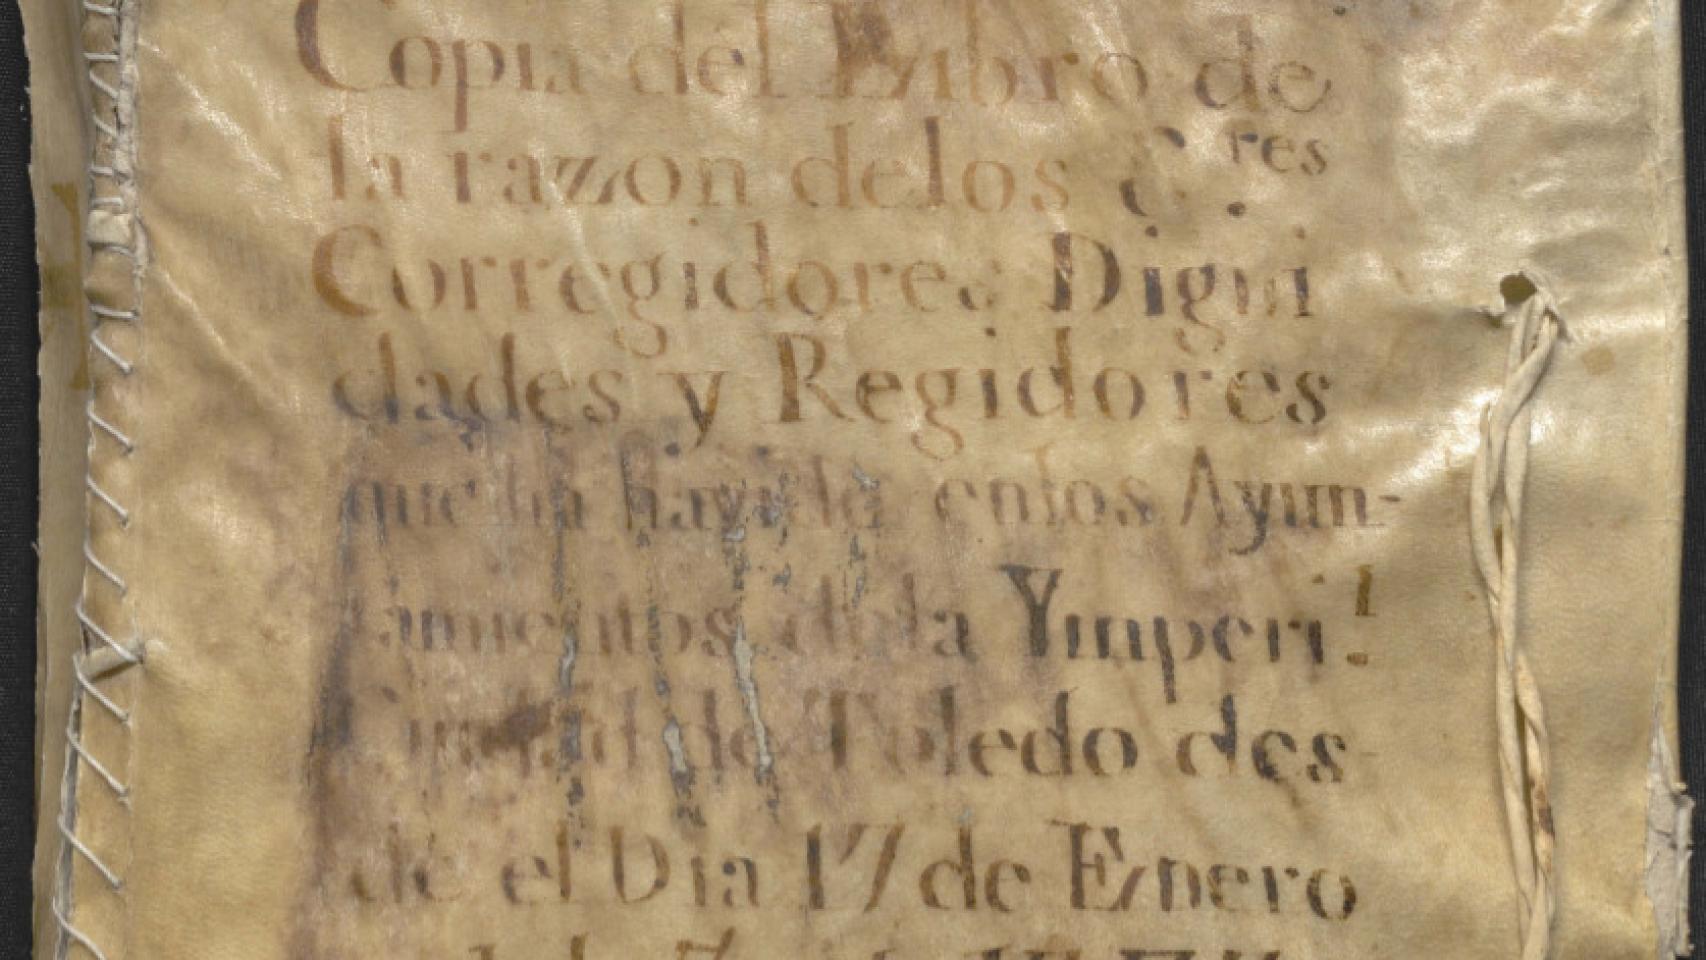 Copia del Libro de
la razon delos S.res
Corregidores Digni
dades y Regidores
que ha havido enlos Ayun-
tamientos dela Ymperi.l
Ciudad de Toledo des-
de el Dia 17 de Enero